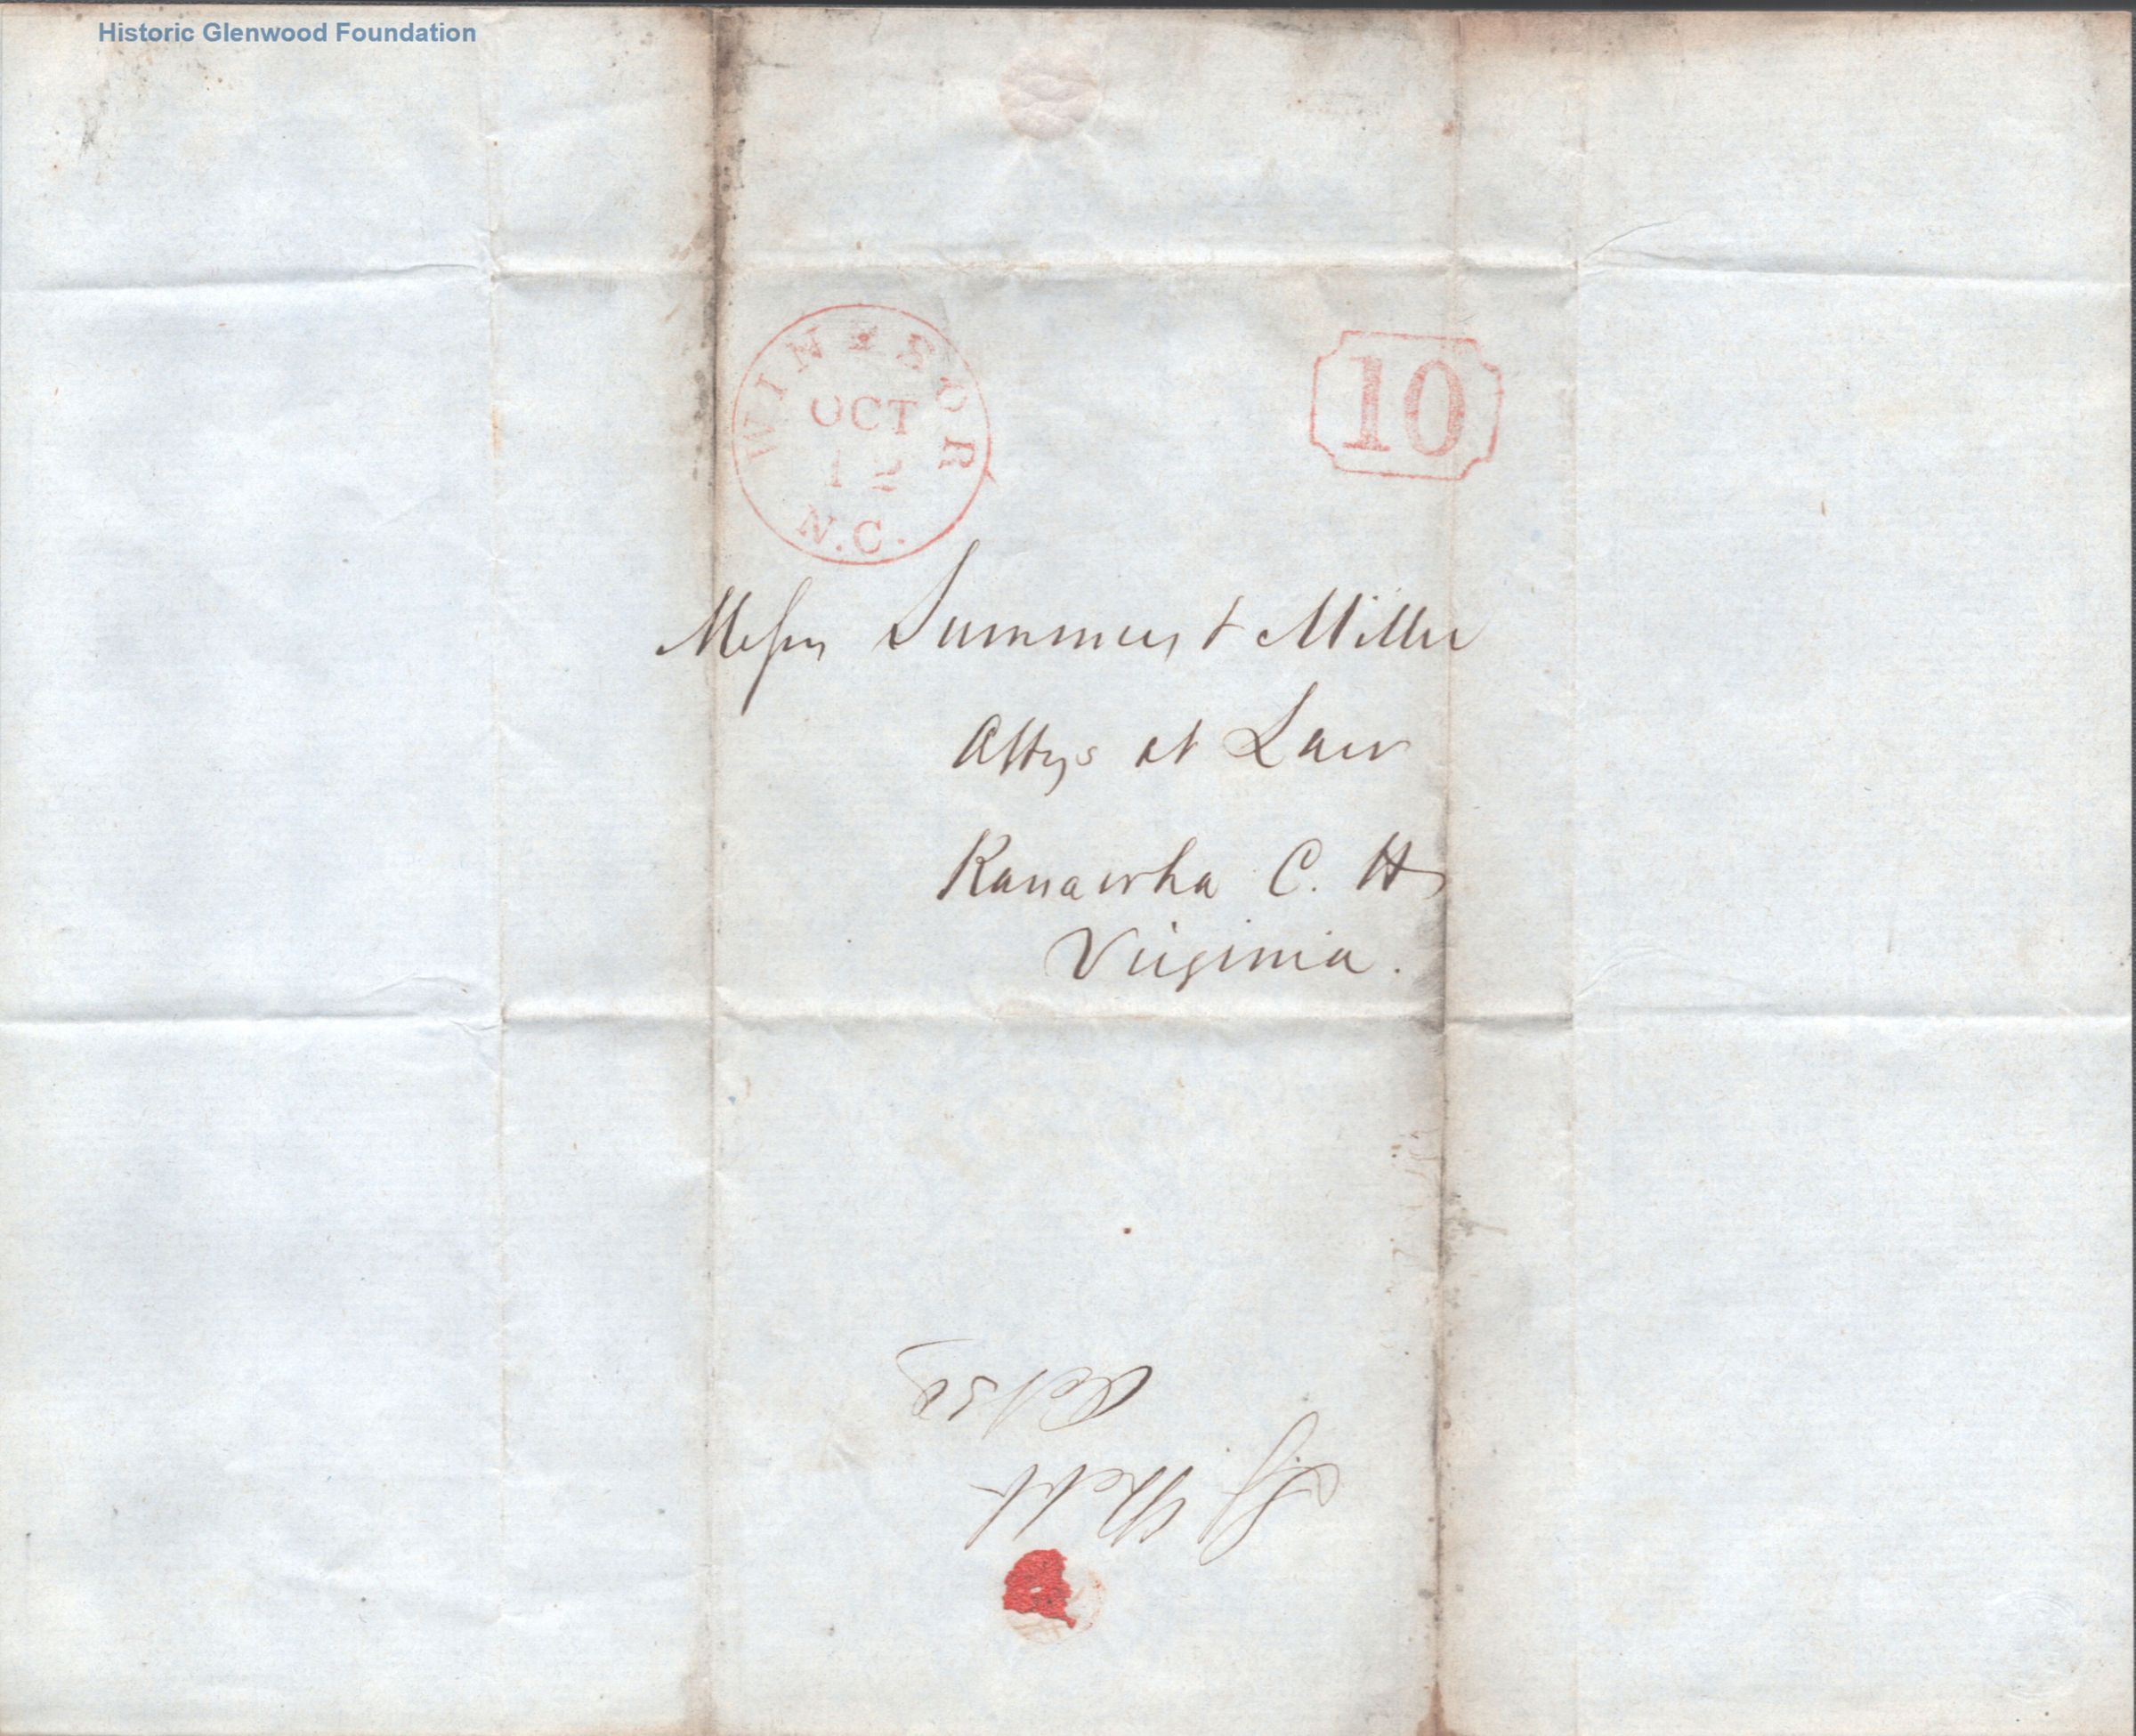 Historic Glenwood Foundation
WINDSOR
OCT
12
N.C.
10
Messrs Summers & Miller
Attys at Law
Kanawha C. H
Virginia.
Webb